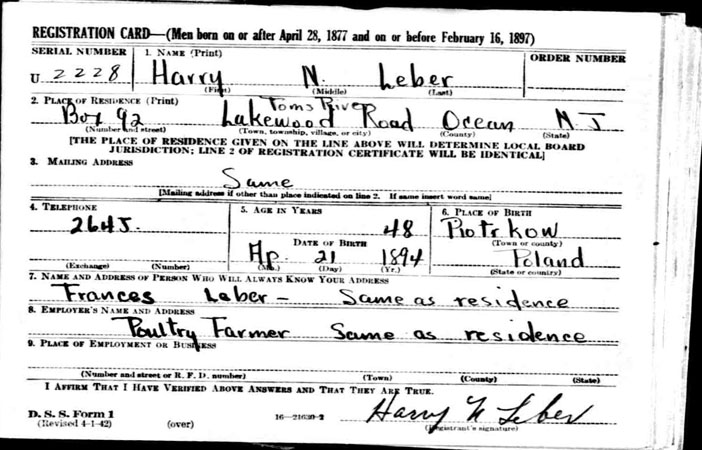 REGISTRATION CARD—(Men born on or after April 28, 1877 and on or before February 16, 1897)
SERIAL NUMBER 1. NAME (Print) ORDER NUMBER
U 2228 Harry N. Leber
(First) (Middle) (Last)
2. PLACE OF RESIDENCE (Print)
Toms River
Box 92 Lakewood Road Ocean N.J
(Number and street) (Town, township, village, or city) (County) (State)
[THE PLACE OF RESIDENCE GIVEN ON THE LINE ABOVE WILL DETERMINE LOCAL BOARD
JURISDICTION; LINE 2 OF REGISTRATION CERTIFICATE WILL BE IDENTICAL]
3. MAILING ADDRESS
Same
[Mailing address if other than place indicated on line 2. If same insert word same]
4. TELEPHONE 5. AGE IN YEARS 6. PLACE OF BIRTH
264J. 48 Piotrkow
DATE OF BIRTH (Town or county)
Ap. 21 1894 Poland
(Exchange) (Number) (Mo.) (Day) (Yr.) (State or country)
7. NAME AND ADDRESS OF PERSON WHO WILL ALWAYS KNOW YOUR ADDRESS
Frances Leber - Same as residence
8. EMPLOYER'S NAME AND ADDRESS
Poultry Farmer Same as residence
9. PLACE OF EMPLOYMENT OR BUSINESS
(Number and street or R. F. D. number) (Town) (County) (State)
I AFFIRM THAT I HAVE VERIFIED ABOVE ANSWERS AND THAT THEY ARE TRUE.
D. S. S. Form 1
(Revised 4-1-42) (over) 16—21630-2 Harry N Leber
(Registrant's signature)